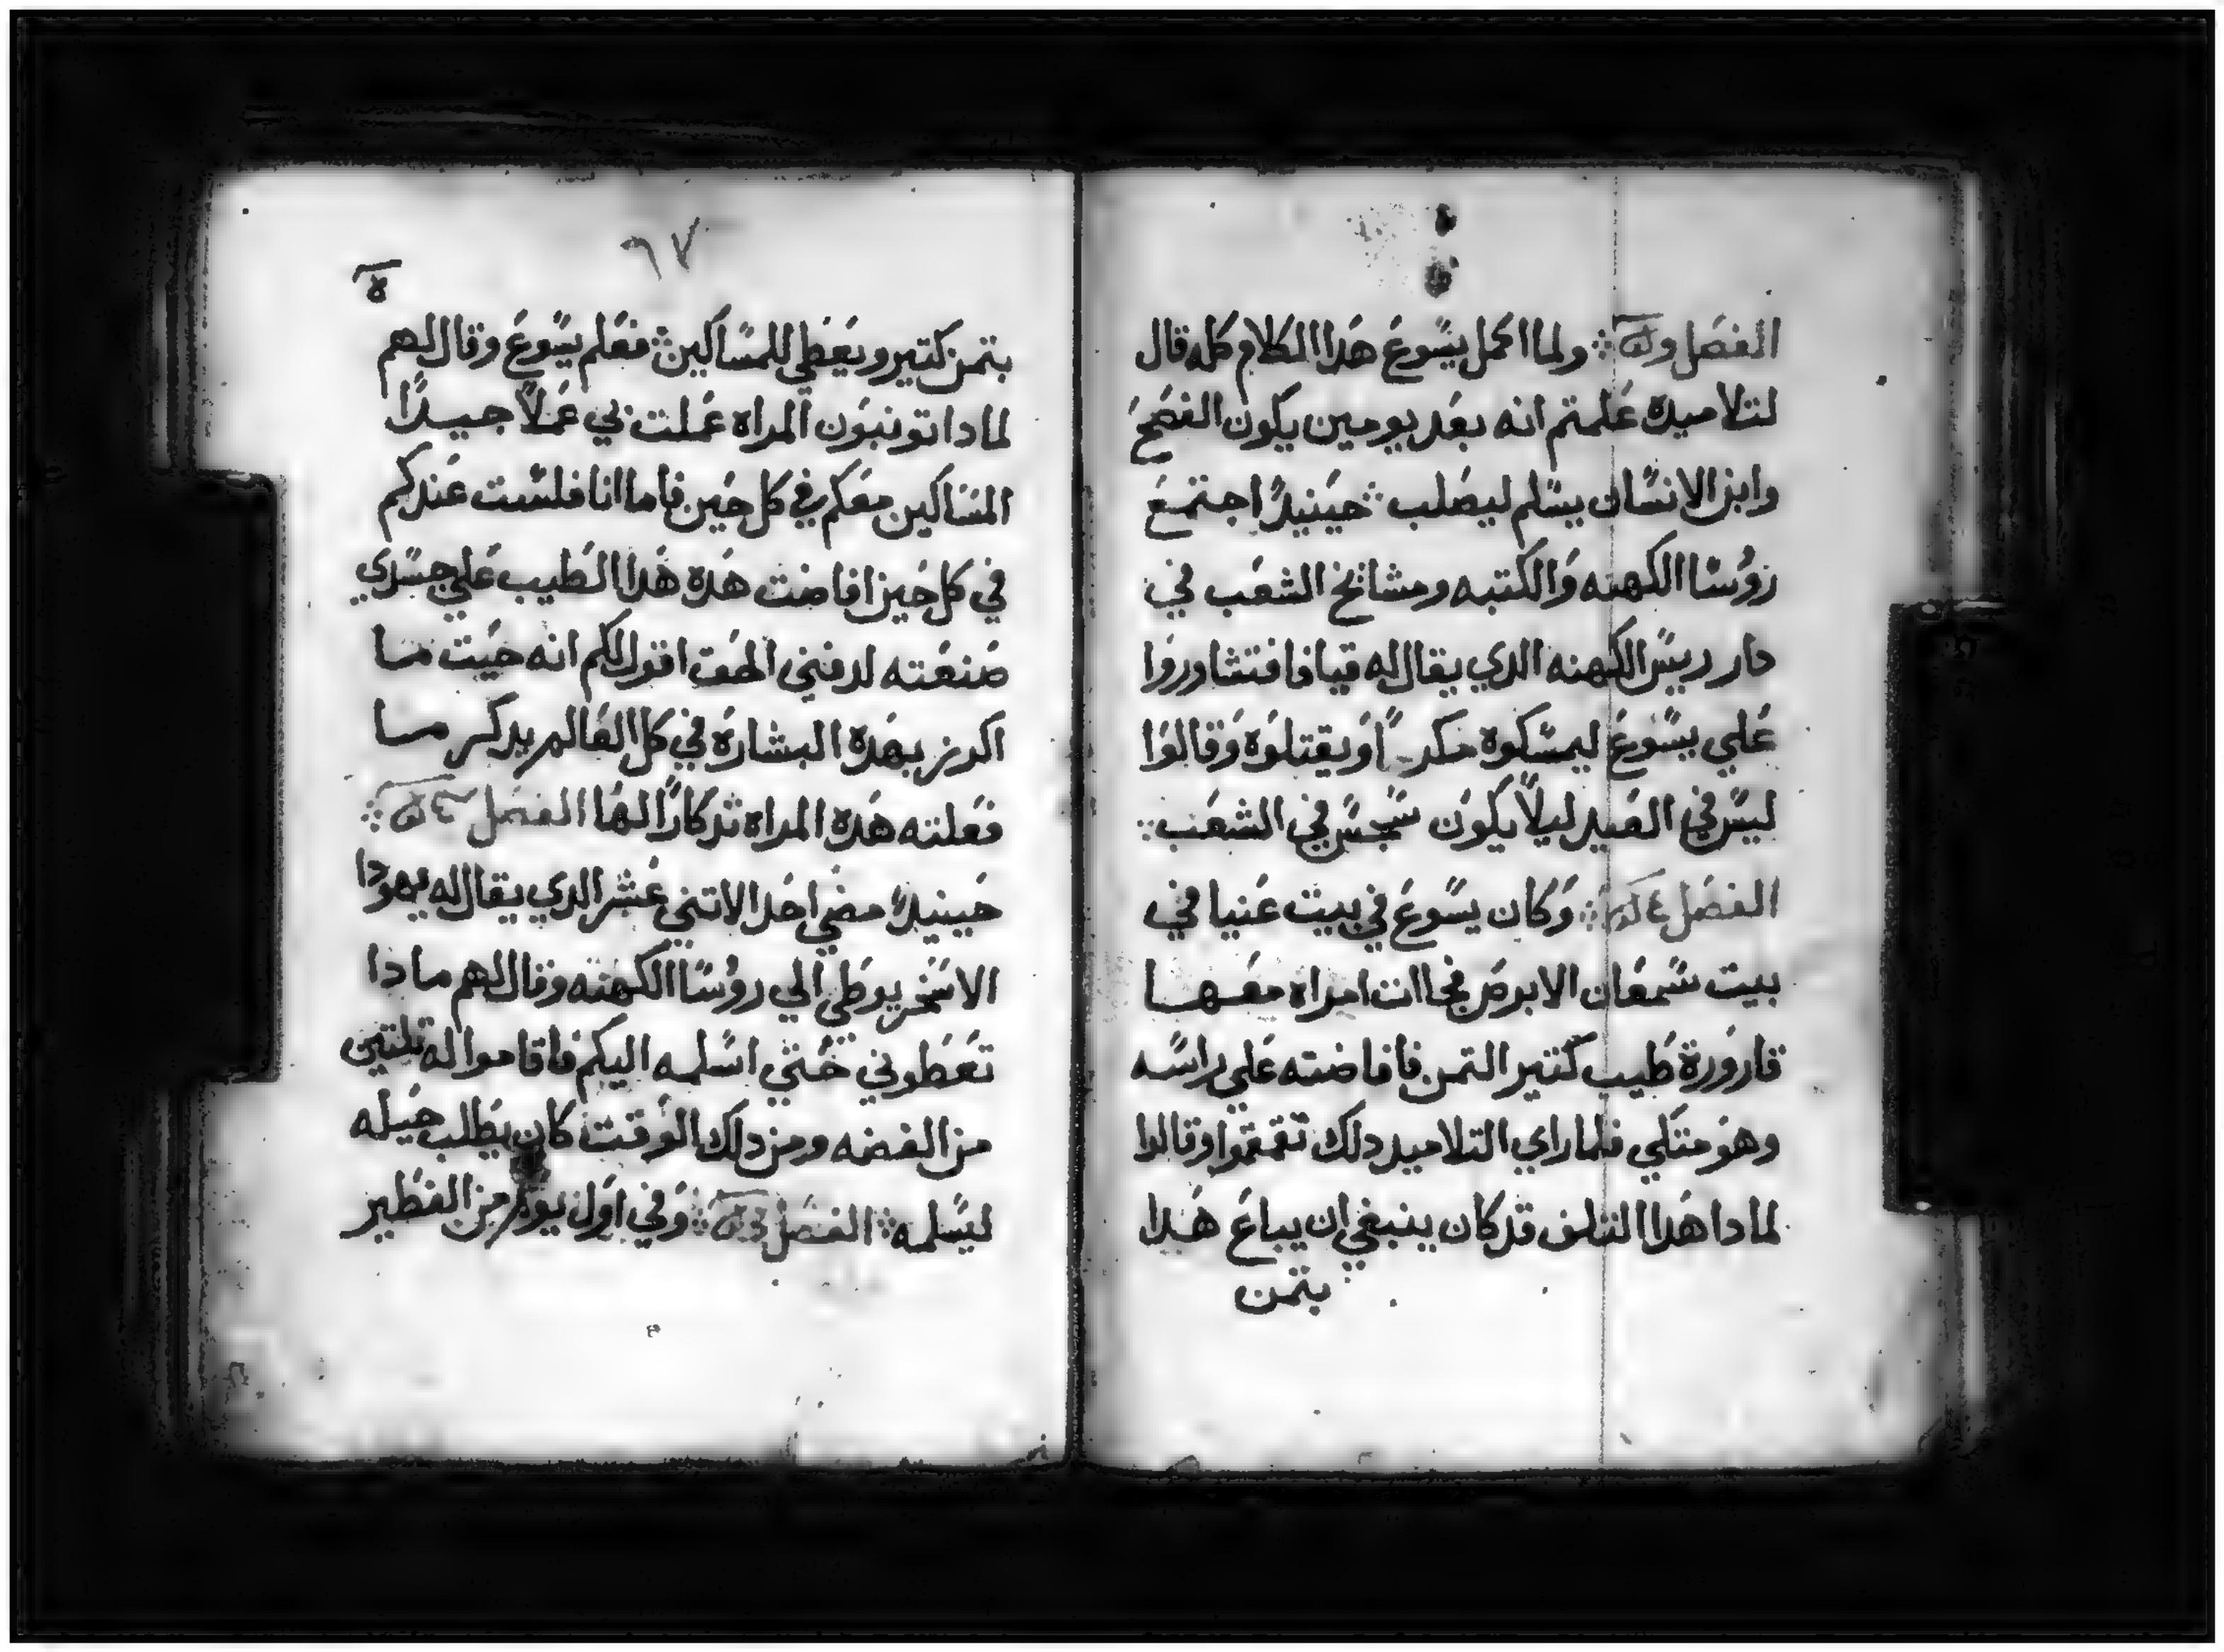 الفصل ولما اكمل يسوع هدا الكلام كله قال
لتلاميده علمتم انه بعد يومين يكون الفصح
وابن الانسان يسلم ليصلب حينيدًا اجتمع
روُسا الكهنه والكتبه ومشايخ الشعب في
دار ريس الكهنه الدي يقال له قيافا فتشاوروا
علي يسوع ليمسكوه مكرًا ويقتلوه وقالوا
ليس في العيد ليلًا يكون سجس في الشعب
الفصل وكان يسوع في بيت عنيا في
بيت سمعان الابرص فجاات امراه معها
قارورة طيب كتير التمن فافاضته علي راسه
وهو متكي فلما راي التلاميد دلك تقمقموا وقالوا
لمادا هدا التلف قد كان ينبغي ان يباع هدا
بتمن
٦٧
ه
بتمن كتير ويعطي للمساكين فعلم يسوع وقال لهم
لمادا تونبون المراه عملت بي عملًا جيدًا
المساكين معكم في كل حين فاما انا فلست عندكم
في كل حين افاضت هده هدا الطيب علي جسدي
صنعته لدفني الحق اقول لكم انه حيت ما
اكرز بهده البشاره في كل العالم يدكر ما
فعلته هده المراه تدكارًا لها الفصل
حينيدًا مضي احد الاتني عشر الدي يقال له يهودا
الاسخريوطي الي روُسا الكهنه وقال لهم مادا
تعطوني حتي اسلمه اليكم فاقاموا له تلتين
من الفضه ومن دلك الوقت كان يطلب حيله
ليسلمه الفصل وفي اول يوم من الفطير